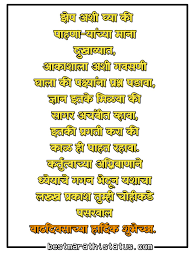 झेप अशी घ्या की
पाहणा-यांच्या माना
दुखाव्यात,
आकाशाला अशी गवसणी
घाला की पक्ष्यांना प्रश्न पडावा,
ज्ञान इतके मिळवा की
सागर अचंबीत व्हावा,
इतकी प्रगती करा की
काळ ही पाहत रहावा.
कर्तुत्वाच्या अग्निबाणाने
ध्येयाचे गगन भेदून यशाचा
लख्ख प्रकाश तुम्ही चोहीकडे
पसरवाल
वाढदिवसाच्या हार्दिक शुभेच्छा.
bestmarathistatus.com